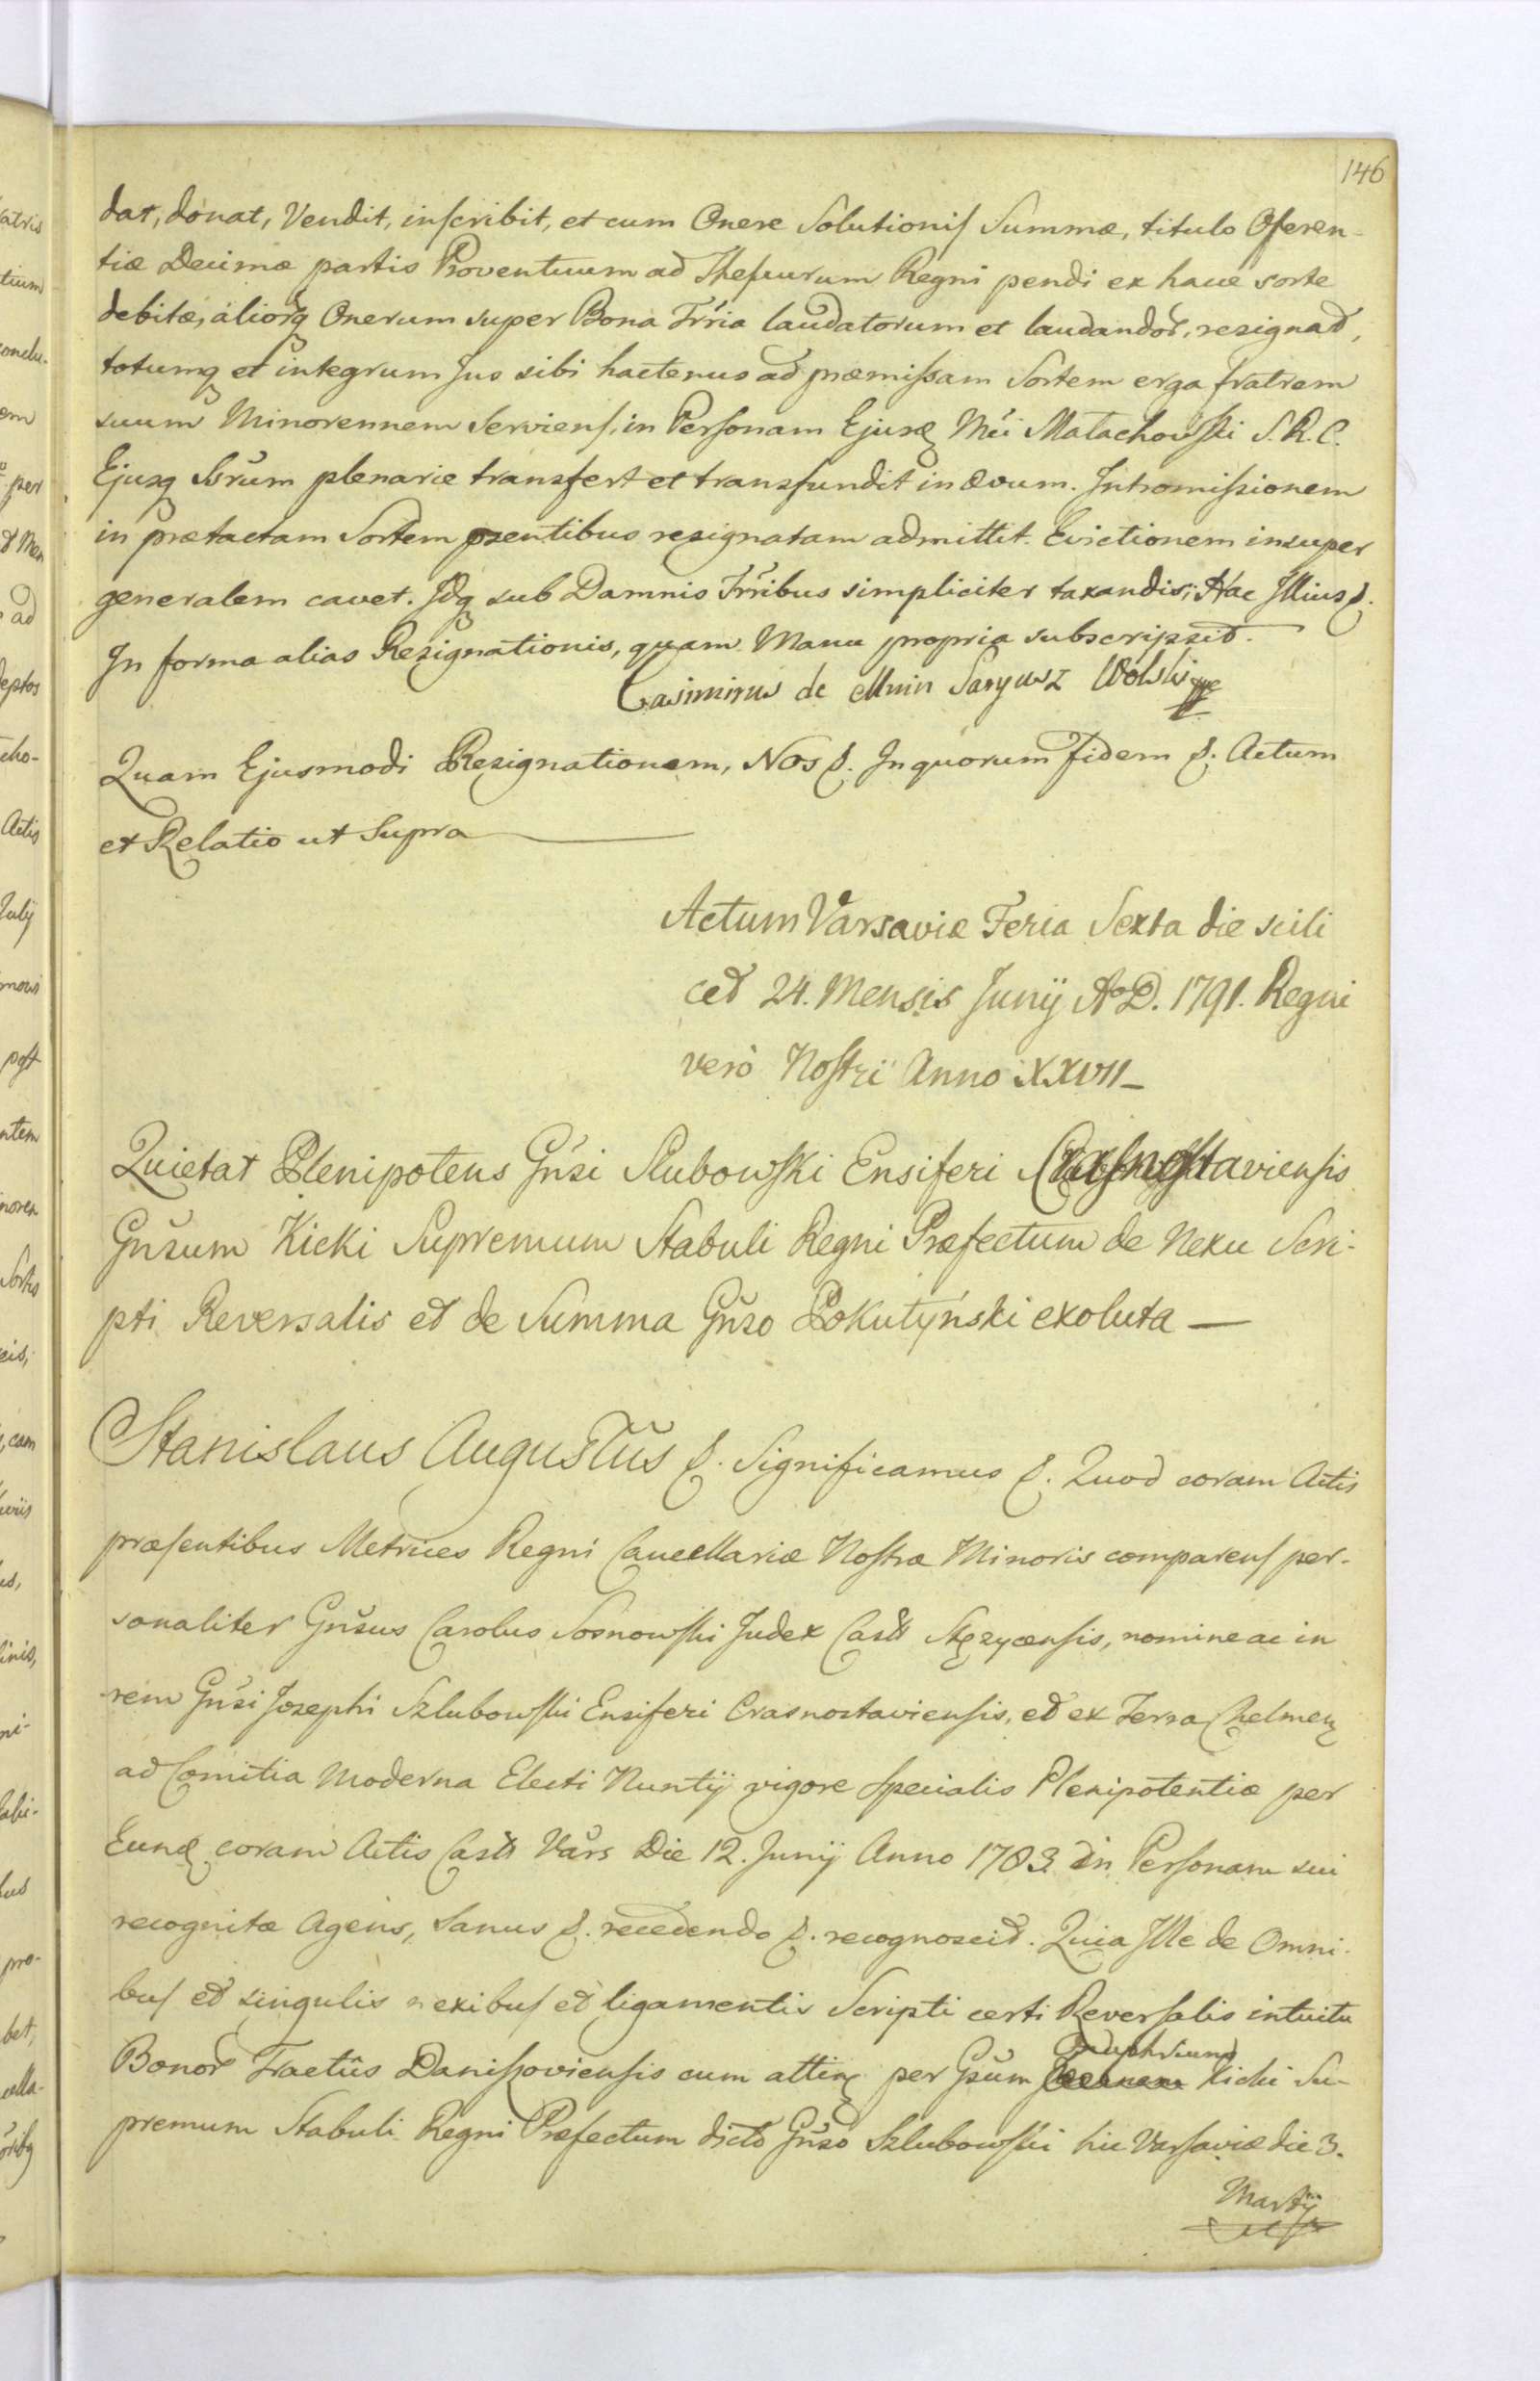 146
dat, donat, Vendit, inscribit, et cum Onere Solutionis Summæ, titulo Oferen-
tiæ Decimæ partis Proventuum ad Thesaurum Regni pendi ex hacce sorte
debitæ, aliorq Onerum super Bona Trria laudatorum et laudandor, resignat,
totumq et integrum Jus sibi hactenus ad præmissam Sortem erga fratrem
suum Minorennem Serviens, in Personam Ejusd Mci Małachowski S. R. C.
Ejusq Ssrum plenarie transfert et transfundit in ævum. Intromissionem
in prætactam Sortem pzentibus resignatam admittit. Evictionem insuper
generalem cavet. Idq sub Damnis Trribus simpliciter taxandis; Hac Illius p.
In forma alias Resignationis, quam Manu propria subscripsit.
Casimirus de Mnin Saryusz Wolski mpp
Quam Ejusmodi Resignationem, Nos p. In quorum fidem p. Actum
et Relatio ut Supra
Actum Varsaviæ Feria Sexta die scili
cet 24. Mensis Junÿ Ao D. 1791. Regni
verò Nostri Anno XXVII
Quietat Plenipotens Gnsi Slubowski Ensiferi Crasnostaviensis
Gnsum Kicki Supremum Stabuli Regni Præfectum de Nexu Scri-
pti Reversalis et de Summa Gnso Pokutyński exoluta
Stanislaus Augustus p. Significamus p. Quod coram Actis
præsentibus Metrices Regni Cancellariæ Nostræ Minoris comparens per-
sonaliter Gnsus Carolus Sosnowski Judex Castr Stęzycensis, nomine ac in
rem Gnsi Josephi Szlubowski Ensiferi Crasnostaviensis, et ex Terra Chelmen
ad Comitia Moderna Electi Nuntÿ vigore specialis Plenipotentiæ per
Eund coram Actis Castr Vars Die 12. Junÿ Anno 1783 in Personam sui
recognitæ Agens, Sanus p. recedendo p. recognoscit. Quia Ille de Omni-
bus et singulis nexibus et ligamentis Scripti certi Reversalis intuitu
Bonor Tractûs Daniszoviensis cum attin per Gsum Onuphrium Kicki Su-
premum Stabuli Regni Præfectum dicto Gnso Szlubowski hic Varsaviæ die 3.
Martÿ